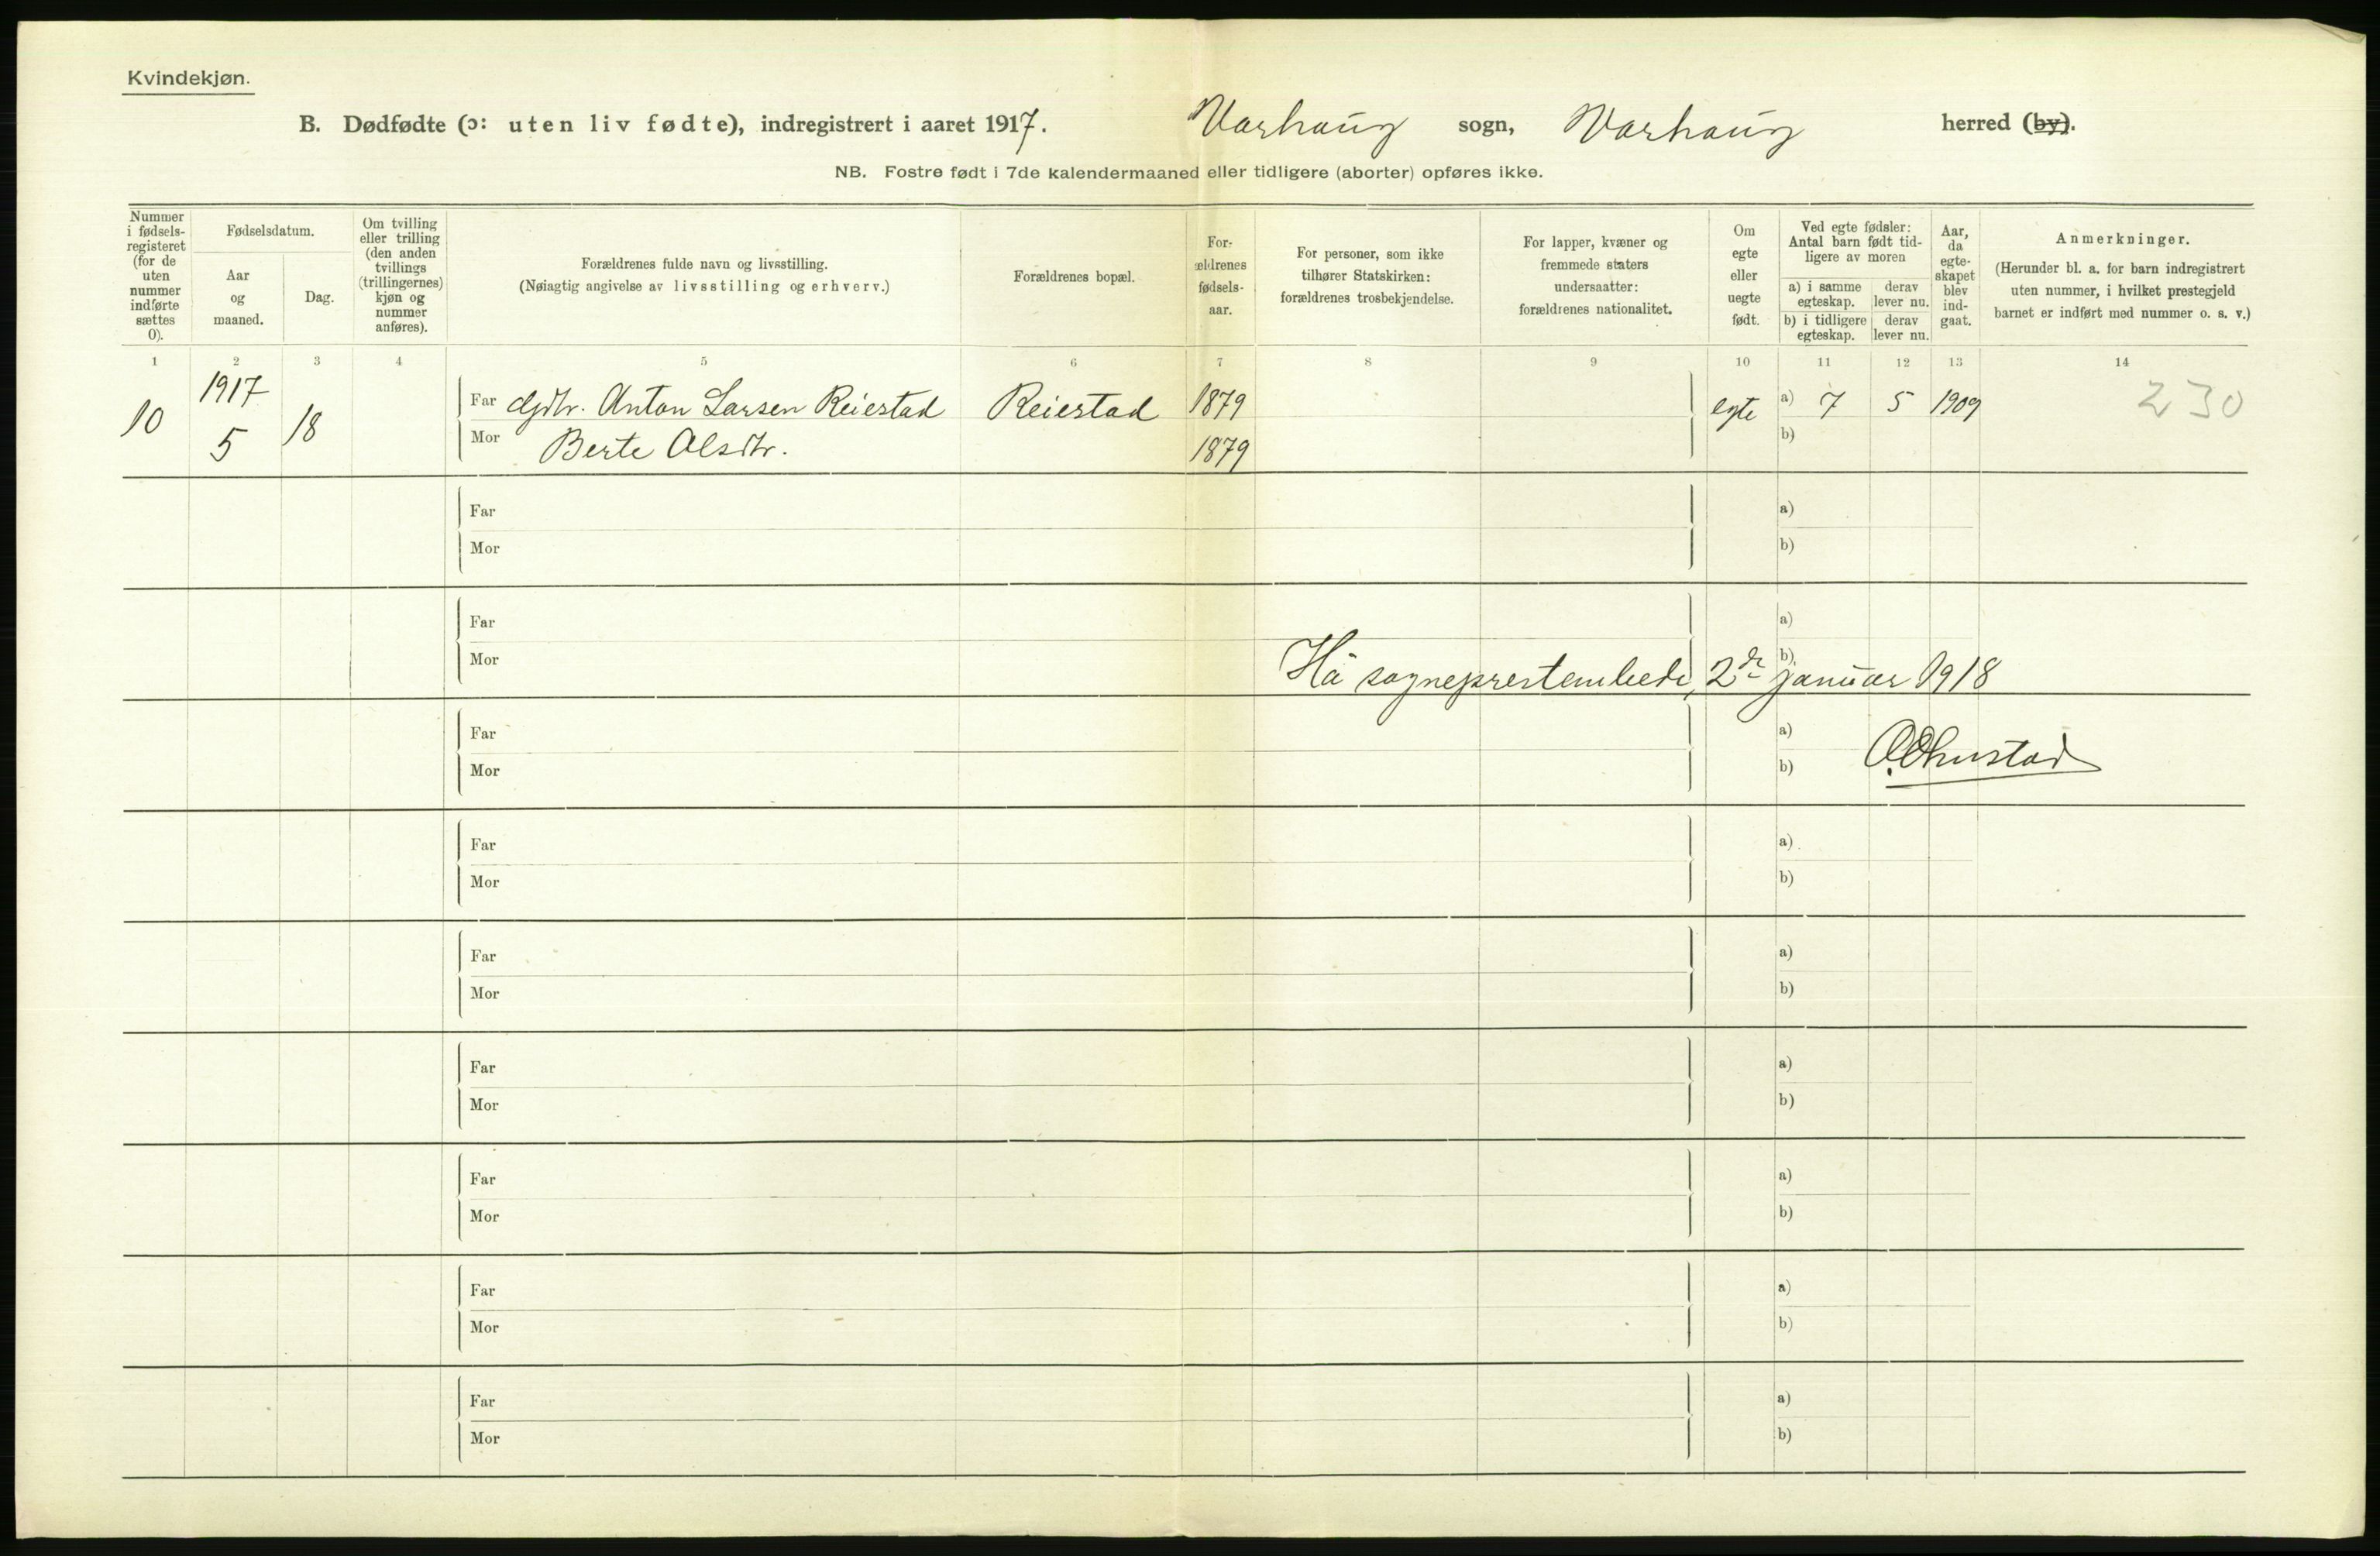 Kvindekjøn.
B. Dødfødte (ɔ: uten liv fødte), indregistrert i aaret 1917. Varhaug sogn, Varhaug herred (by).
NB. Fostre født i 7de kalendermaaned eller tidligere (aborter) opføres ikke.
Nummer i fødsels-registeret (for de uten nummer indførte sættes 0).
Fødselsdatum.
Aar og maaned.
Dag.
Om tvilling eller trilling (den anden tvillings (trillingernes) kjøn og nummer anføres).
Forældrenes fulde navn og livsstilling.
(Nøiagtig angivelse av livsstilling og erhverv.)
Forældrenes bopæl.
For-ældrenes fødsels-aar.
For personer, som ikke tilhører Statskirken: forældrenes trosbekjendelse.
For lapper, kvæner og fremmede staters undersaatter: forældrenes nationalitet.
Om egte eller uegte født.
Ved egte fødsler: Antal barn født tid-ligere av moren
a) i samme egteskap.
derav lever nu.
b) i tidligere egteskap.
derav lever nu.
Aar, da egte-skapet blev ind-gaat.
Anmerkninger.
(Herunder bl. a. for barn indregistrert uten nummer, i hvilket prestegjeld barnet er indført med nummer o. s. v.)
1 2 3 4 5 6 7 8 9 10 11 12 13 14
10 1917 5 18 Far Anton Larsen Reiestad Reiestad 1879 egte a) 7 5 1909 230
Mor Berte Olsdtr. 1879 b)
Far a)
Mor b)
Far a)
Mor b)
Hå sogneprestembede, 2de januar 1918
Far a)
Mor b)
Far a)
Mor b)
Far a)
Mor b)
Far a)
Mor b)
Far a)
Mor b)
Far a)
Mor b)
Far a)
Mor b)